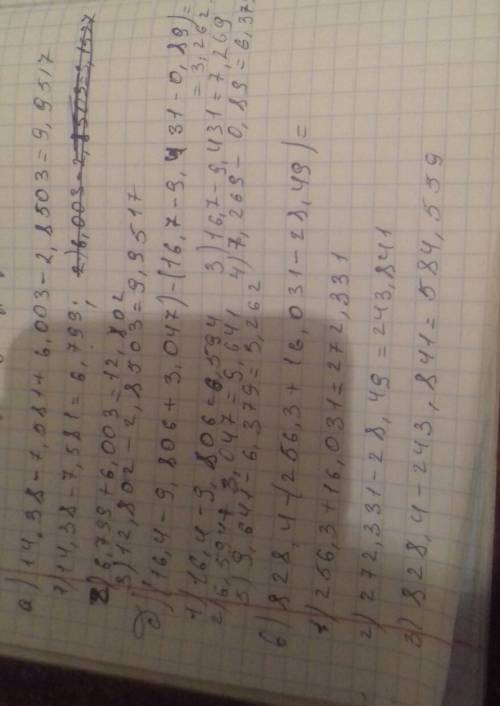 а) 14,38-7,081+6,003-2,8503=9,9517
1) 14,38-7,581=6,799;
2) 6,799+6,003=12,802
3) 12,802-2,8503=9,9517
б) (16,4-9,806+3,047)-(16,7-9,431-0,89)=
=3,262
1) 16,4-9,806=6,594 3) 16,7-9,431=7,269
2) 6,594+3,047=9,641 4) 7,269-0,89=6,379
5) 9,641-6,379=3,262
в) 828,4-(256,3+16,031-28,49)=
1) 256,3+16,031=272,331
2) 272,331-28,49=243,841
3) 828,4-243,841=584,559